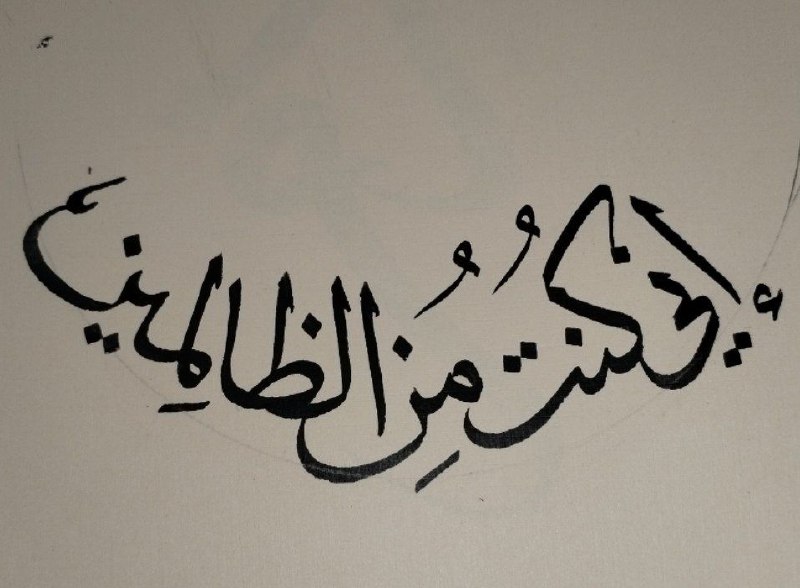 إني كنتُ مُنِ الظالمِين